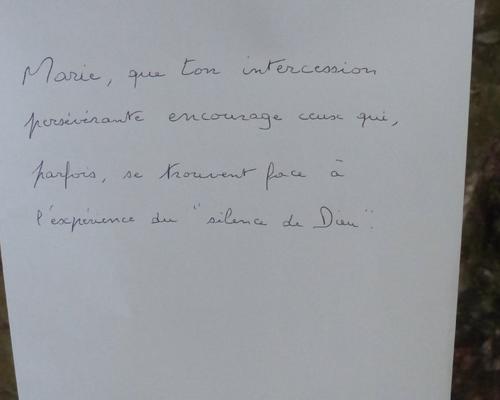 Marie, que ton intercession
persévérante encourage ceux qui,
parfois, se trouvent face à
l'expérience du "silence de Dieu".